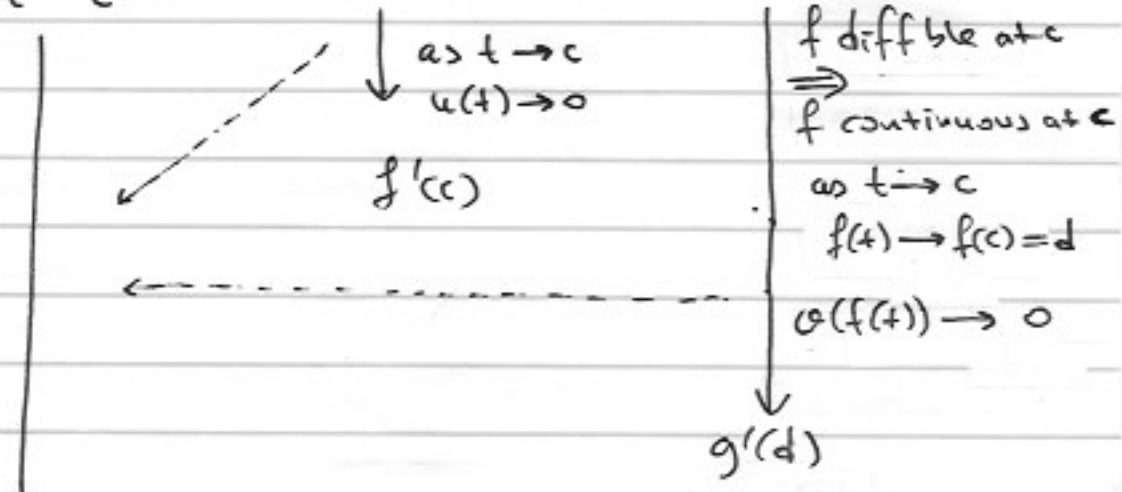 as t → c
u(t) → 0
f'(c)
f diffble at c
⇒
f continuous at c
as t → c
f(t) → f(c) = d
v(f(t)) → 0
g'(d)